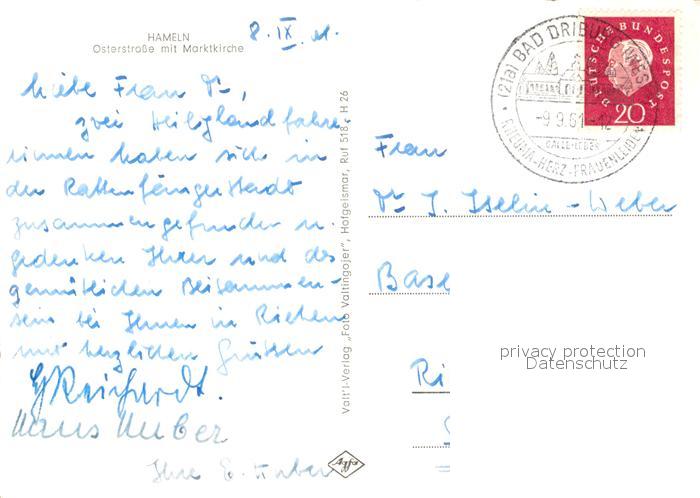 HAMELN
Osterstraße mit Marktkirche
8. IX. 61.
Liebe Frau Dr.,
zwei Heiligland fahre-
rinnen haben sich in
der Rattenfängerstadt
zusammengefunden u.
gedenken Ihrer und des
gemütlichen Beisammen-
sein bei Ihnen in Riehen
mit herzlichen Grüssen
G Reichardt.
Hans Huber
Ihre E. Huber
Valt'l-Verlag „Foto Valtingojer", Hofgeismar, Ruf 518 - H 26
Agfa
(21a) BAD DRIBURG
-9.9.61-12
GALLE-LEBER
RHEUMA-HERZ-FRAUENLEIDEN
DEUTSCHE BUNDESPOST
20
Frau
Dr. I. Iselin-Weber
Base
Ri
privacy protection
Datenschutz